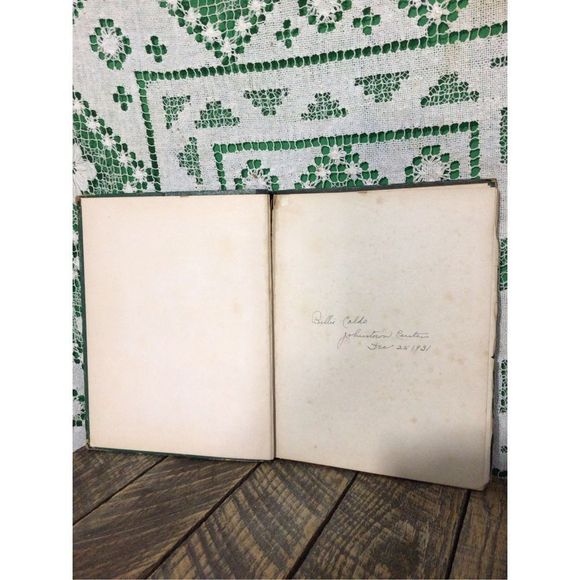 Billie Caldo
Johnstown Center
Dec 25 1931